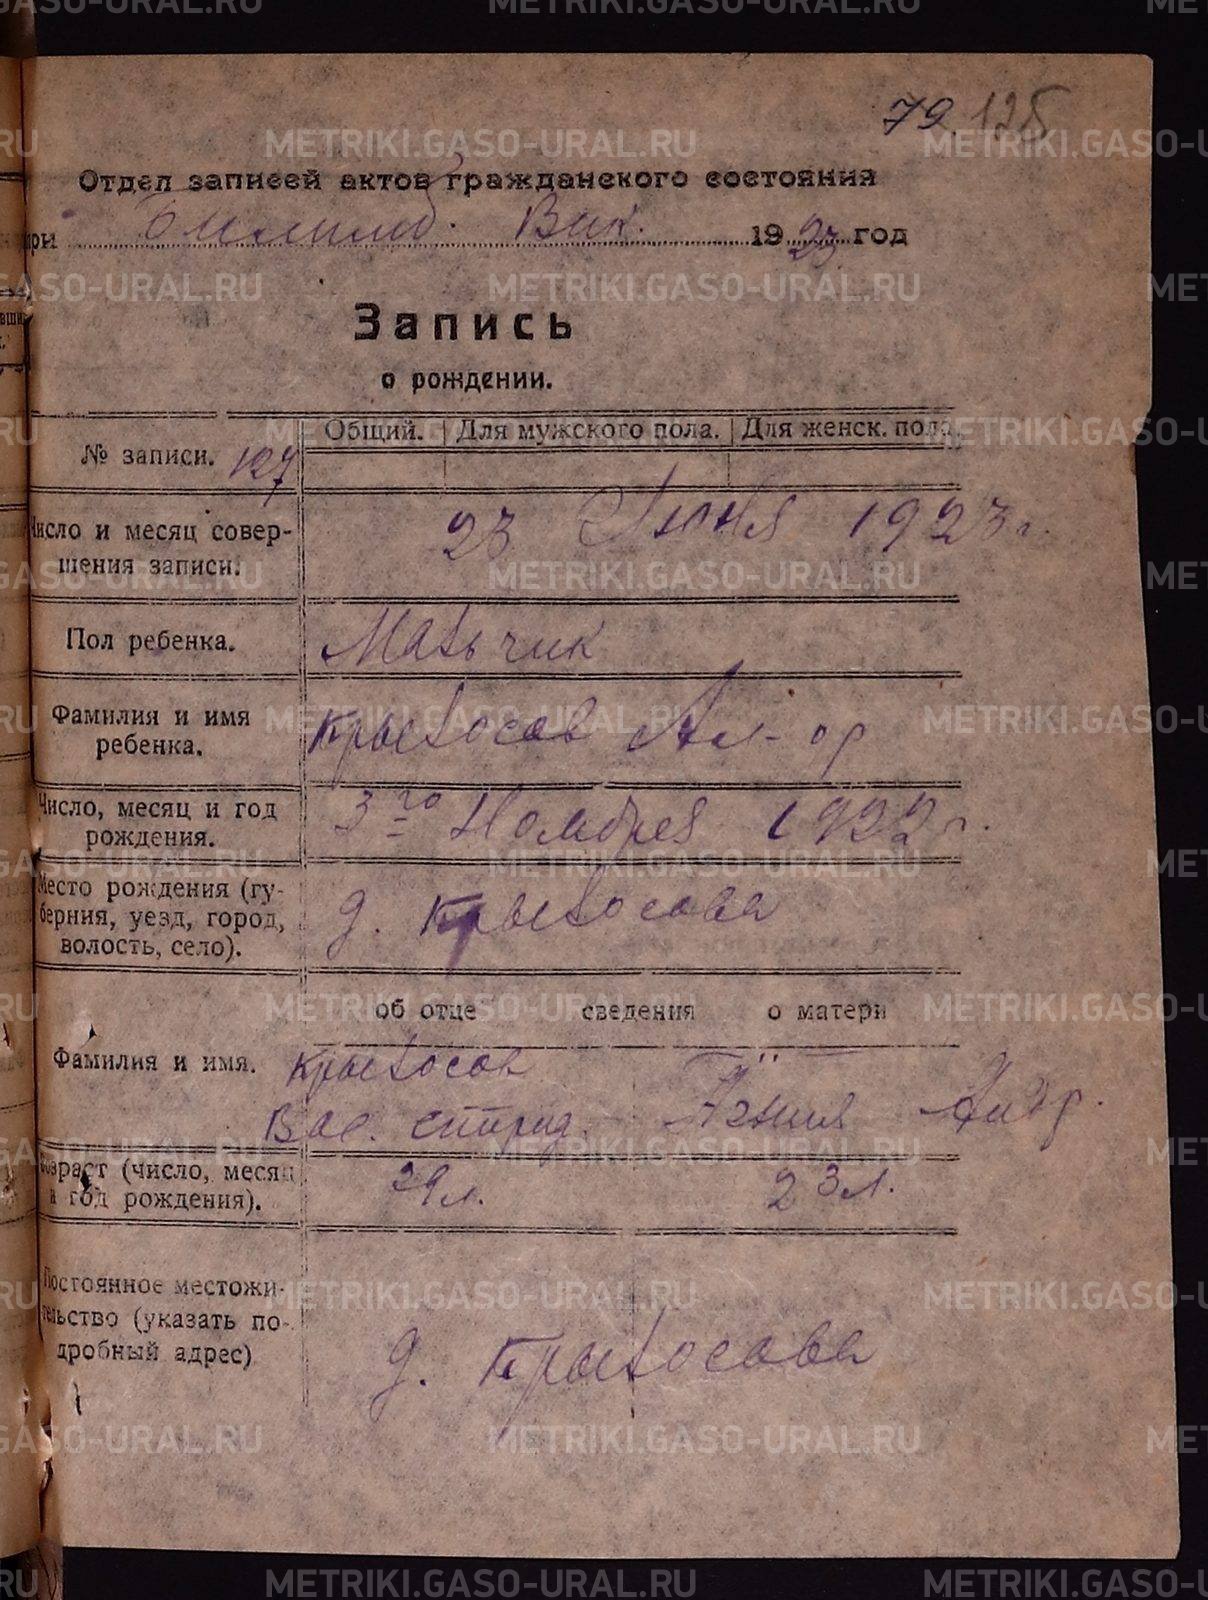 79 125
Отдел записей актов гражданского состояния
ры Билимб. Вик. 1923 год
Запись
о рождении.
Общий. Для мужского пола. Для женск. пола
№ записи. 127
Число и месяц совер-
шения записи. 23 Июня 1923 г.
Пол ребенка. Мальчик
Фамилия и имя
ребенка. Крылосов Ал-др
Число, месяц и год
рождения. 3го Ноября 1922 г.
Место рождения (гу-
берния, уезд, город,
волость, село). д. Крылосова
об отце сведения о матери
Фамилия и имя. Крылосов
Вас. Спирид. Андр.
возраст (число, месяц
и год рождения). 29 л. 23 л.
Постоянное местожи-
тельство (указать по-
дробный адрес) д. Крылосова